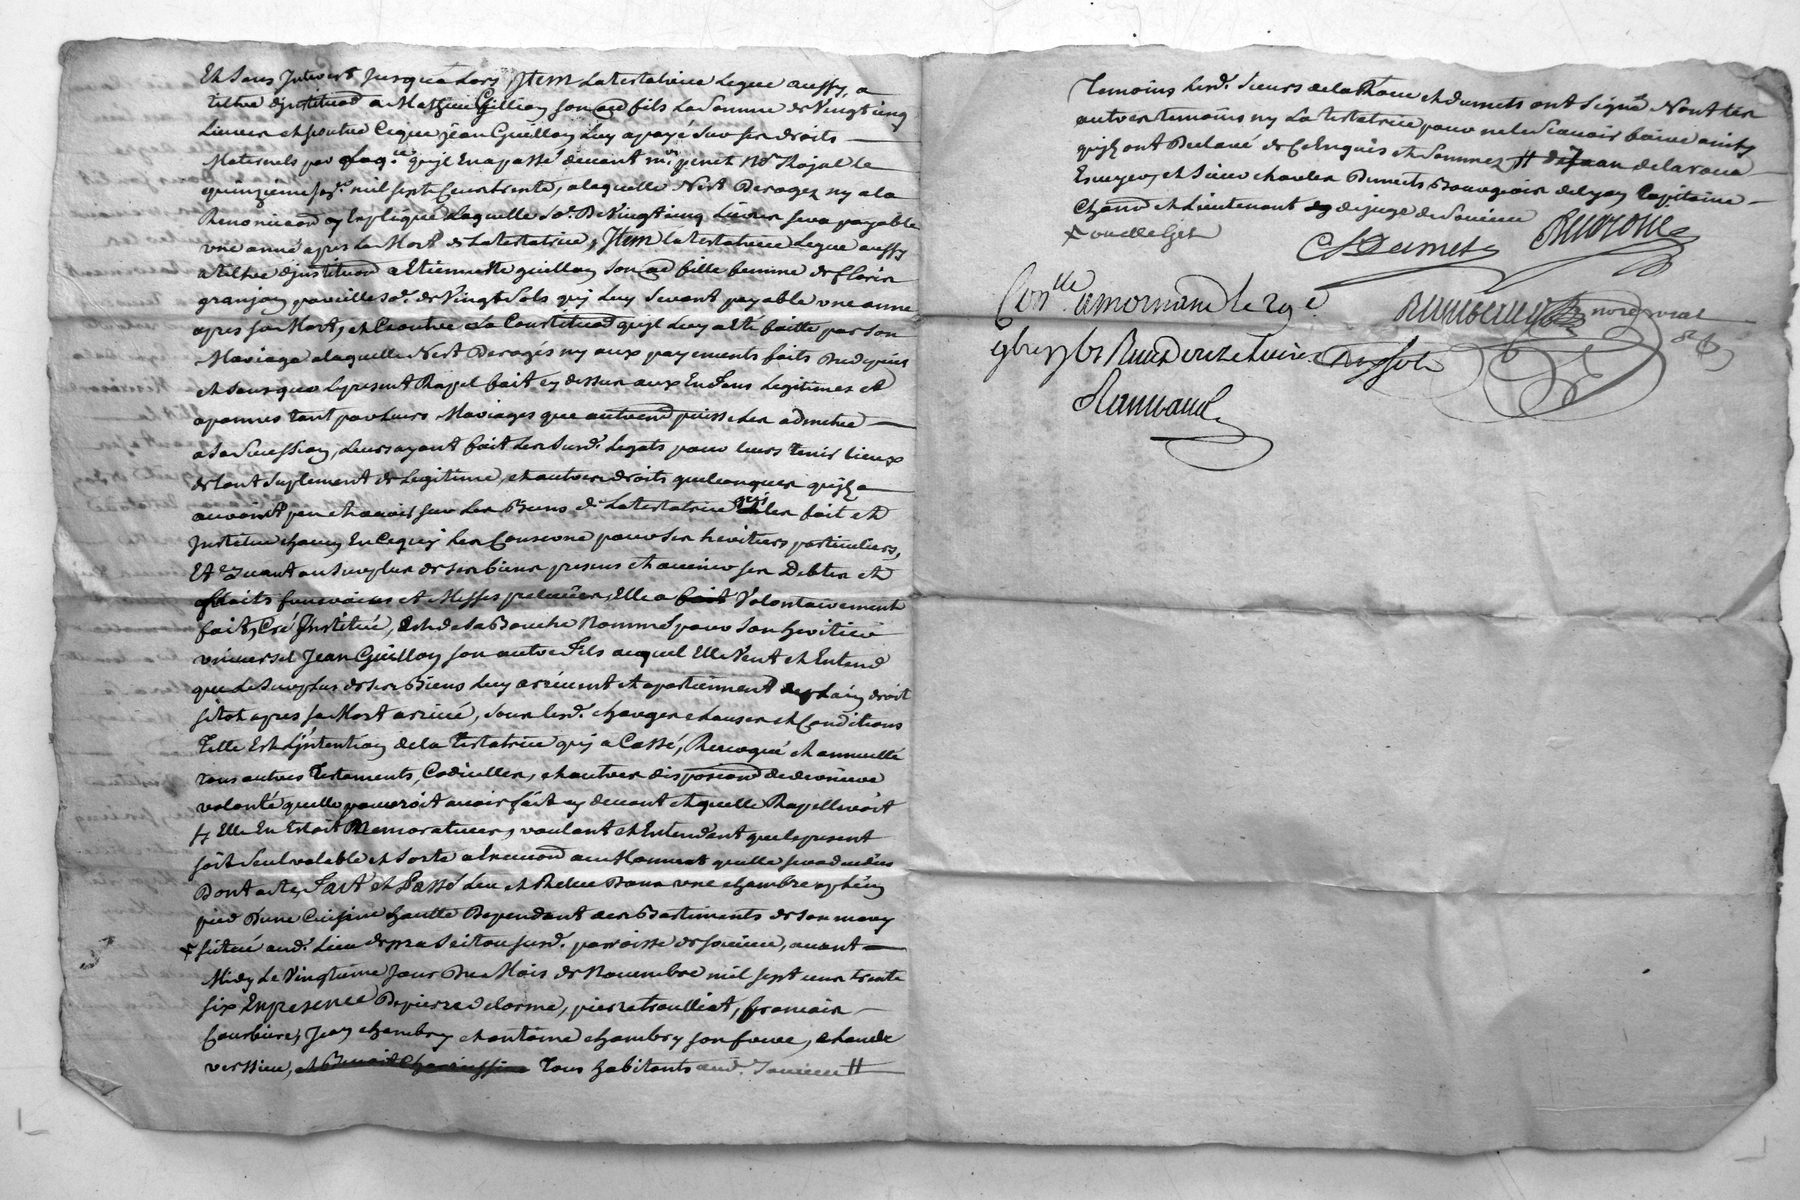 Et sans Interest Jusque a Lors Item La testatrice Legue aussy a
tiltre d'jnstituaõn a Mathieu Guillon son autre fils La Somme de Vingt cinq
Livres et ce outre Ceque jean Guillon Luy a payé sur ses droits
Maternels par quitce qu'jl En a passé devant me penet Nore Royal le
quinzieme mil sept Cent trente, a laquelle N'est Derogez ny a la
Renonciaõn y Expliquée Laquelle Se. De Vingt cinq Livres sera payable
une année apres La Mort de La testatrice, Item la testatrice Legue aussy
a tiltre d'jnstituaõn a Etiennette guillon son autre fille femme de Claris
granjon pareille Se. de Vingt Sols qui Luy seront payable une année
apres sa Mort, et Ce outre La Constituaõn qu'jl Luy a Eté faitte par son
Mariage a laquelle N'est Derogés ny aux payements faits Du depuis
et sans que Le present Rapel fait cy dessus aux Enfans Legitimes et
apannés tant par Leurs Mariages que autremt puisse Les admettre
a sa Succession, Leurs ayant fait Les Susd. Legats pour Leurs tenir Lieux
de tout Suplement de Legitime, et autres droits quelconques qu'jls
auroient peu et avoir sur Les Biens de La testatrice qui Les fait et
Jnstitue chacun En Cequi Les Conserne pour Ses heritiers particuliers,
Et Quant au Surplus de ses biens presens et avenir ses Debtes et
fraits funeraires et Messes prelevées, Elle a fait Volontairement
fait, Créé Jnstitué, Et de sa Bouche Nommé pour Son heritier
universel Jean Guillon son autre Fils auquel Elle Veut et Entend
que Le Surplus de ses Biens Luy arrivent et apartiennent de plain droit
sitot apres sa Mort arrivé, sous Lesd. charges clauses et Conditions
Telle Est L'jntention de la testatrice qui a Cassé, Revoqué et annullé
tous autres Testaments, Codicilles, et autres disposiõns de derniere
volonté quelle pourroit avoir fait cy devant et quelle Rapelleroit
sy Elle En Estoit Memorative, voulant et Entendant que le present
soit Seul valable et Sorte a Execuõn au Moment quelle sera decedée
Dont acte, Fait et Passé Leu et Releu Dans une chambre a plein
pied D'une Cuisine haulte Dependant des Bastiments de Son mary
x situé aud. Lieu de susd. parroisse de soucieu, avant
Midy Le Vingtième Jour Du Mois de Novembre mil sept cent trente
six En presence De pierre delorme, pierre troulliat, francois
Courbiere, Jean chambry et antoine chambry son frere, claude
versieu, et Benoit Tous habitants aud. Soucieu #
Temoins Lesd. Sieurs dela Roue et dumets ont Signé Non Les
autres temoins ny La testatrice pour ne le Scavoir faire ainsy
qu'jls ont Declaré de Ce Enquis et Sommez # de Jean de la roue
Escuyer, et Sieur charles Dumets Bourgeois de lyon Capitaine
et Lieutenant de juge de Soucieu
x ou elle Git
CDumets Delaroue
Conlle a mornand le 29e
9bre 1736 Reçu douze livres